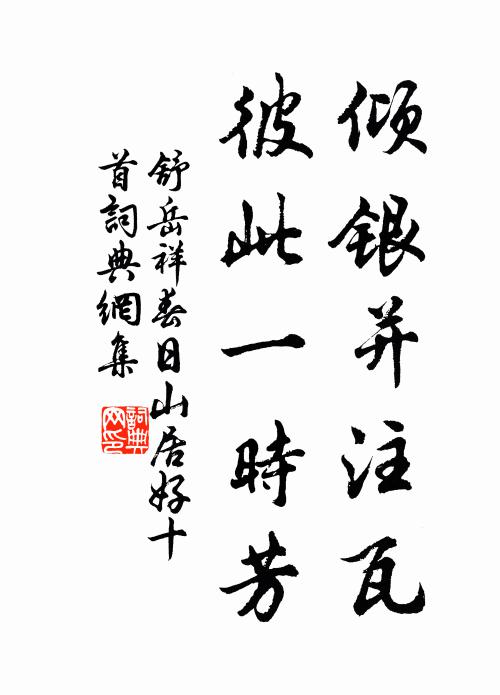 倾銀并注瓦
彼此一時芳
舒岳祥春日山居好十
首詞典網集
詞典
网印